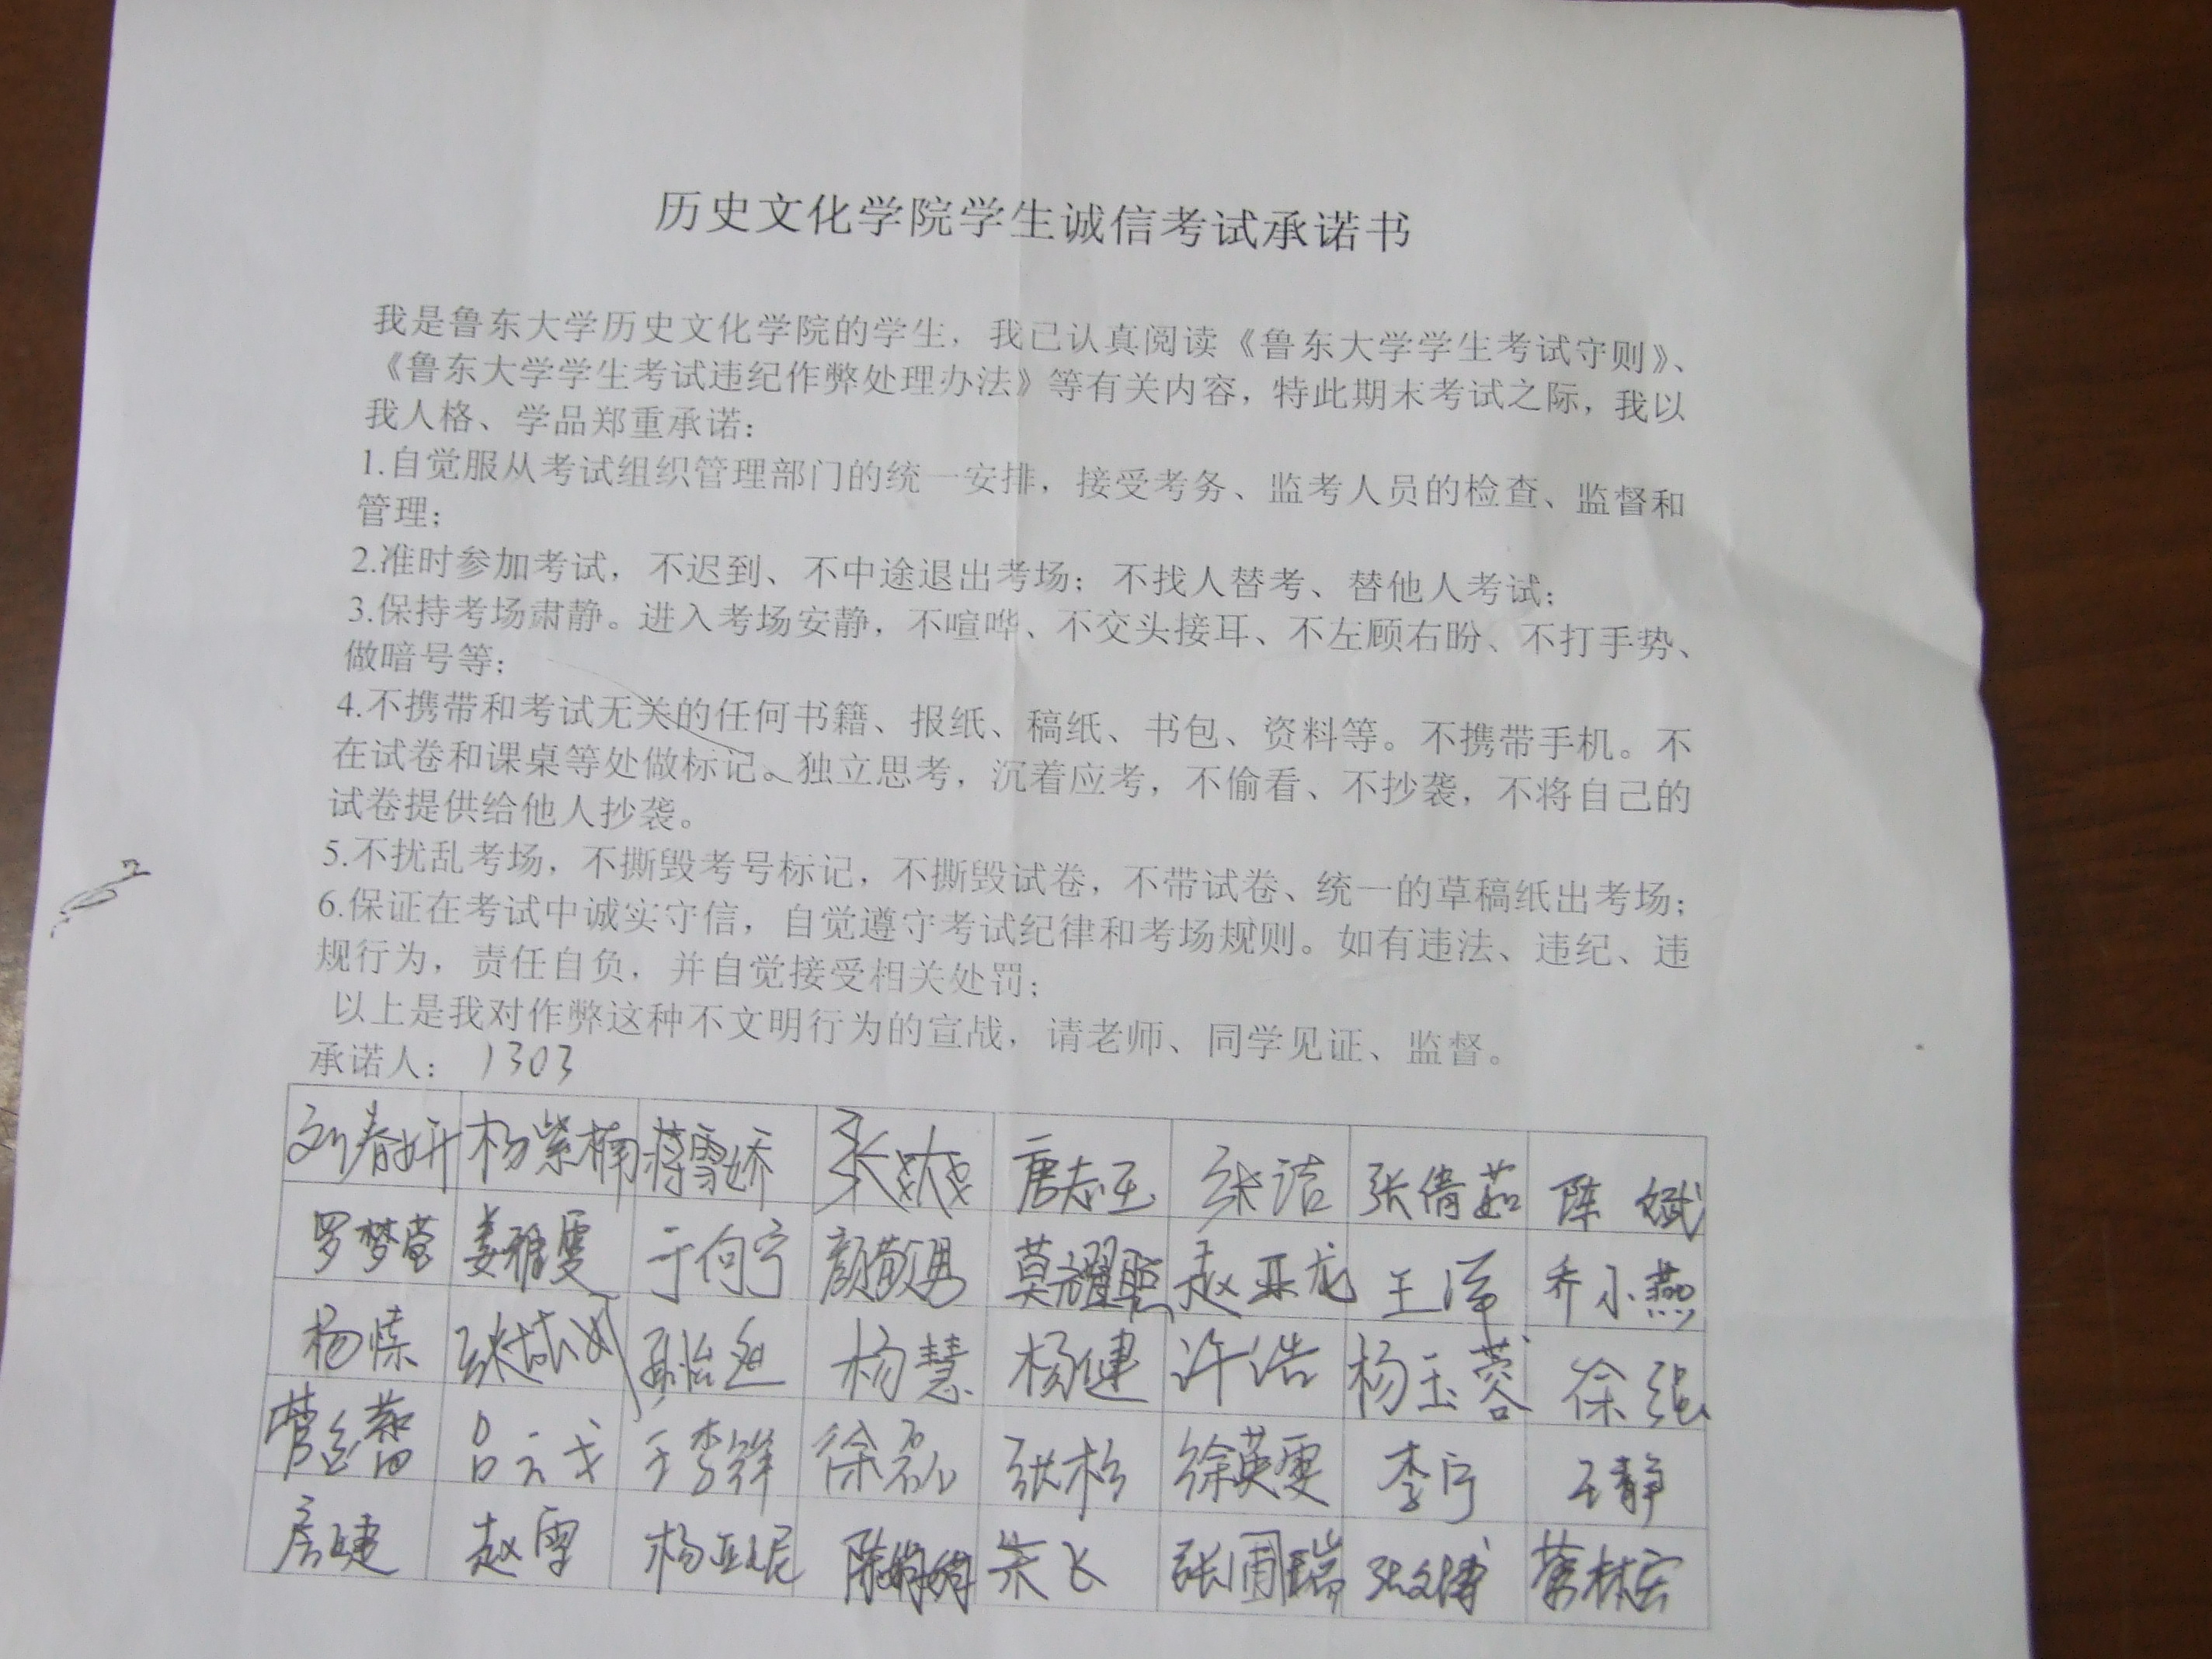 历史文化学院学生诚信考试承诺书
我是鲁东大学历史文化学院的学生，我已认真阅读《鲁东大学学生考试守则》、
《鲁东大学学生考试违纪作弊处理办法》等有关内容，特此期末考试之际，我以
我人格、学品郑重承诺：
1.自觉服从考试组织管理部门的统一安排，接受考务、监考人员的检查、监督和
管理；
2.准时参加考试，不迟到、不中途退出考场；不找人替考、替他人考试；
3.保持考场肃静。进入考场安静，不喧哗、不交头接耳、不左顾右盼、不打手势、
做暗号等；
4.不携带和考试无关的任何书籍、报纸、稿纸、书包、资料等。不携带手机。不
在试卷和课桌等处做标记。独立思考，沉着应考，不偷看、不抄袭，不将自己的
试卷提供给他人抄袭。
5.不扰乱考场，不撕毁考号标记，不撕毁试卷，不带试卷、统一的草稿纸出考场；
6.保证在考试中诚实守信，自觉遵守考试纪律和考场规则。如有违法、违纪、违
规行为，责任自负，并自觉接受相关处罚；
以上是我对作弊这种不文明行为的宣战，请老师、同学见证、监督。
承诺人： 1303
刘春妍 杨紫楠 蒋雪娇 唐志玉 张洁 张倩茹 陈斌
罗梦莹 姜雅雯 于向宁 颜敬男 赵亚龙 王萍 乔小燕
杨慧 杨健 许浩 杨玉蓉 徐强
徐磊 张杉 徐英雯 李宁 王静
房婕 赵雪 杨亚妮 朱飞 张国瑞 张文博